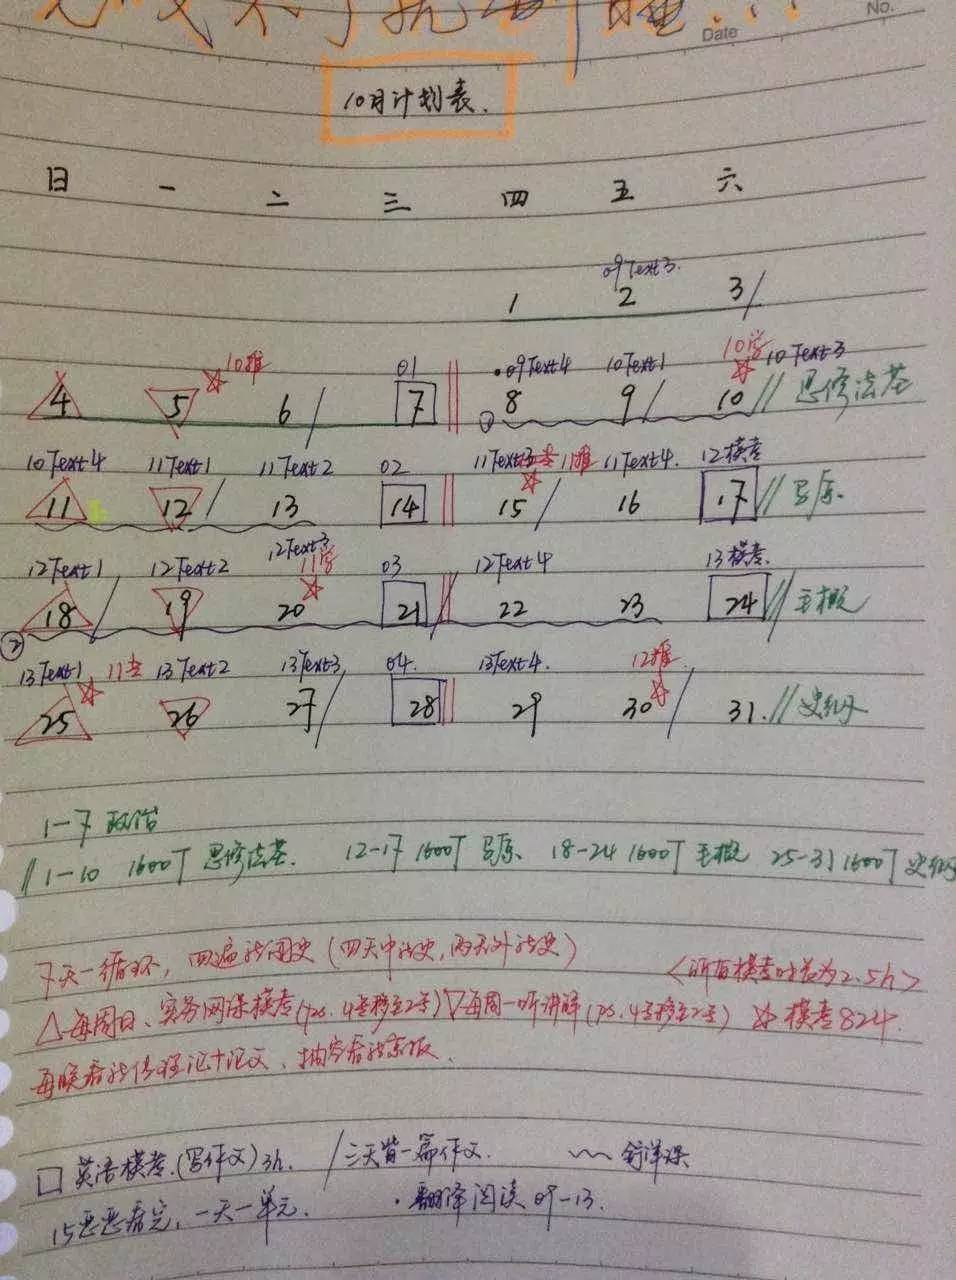 No.
Date
10月计划表.
日 一 二 三 四 五 六
09Text3.
1 2 3/
10推 01 ·09Text4 10Text1 10学 10Text3
4 5 6/ 7 8 9/ 10// 思修法基
10Text4 11Text1 11Text2 02 11Text3 11推 11Text4. 12模考
11 12/ 13 14 15/ 16 17// 马原
12Text1 12Text2 12Text3 11学 03 12Text4 13模考.
18/ 19 20 21/ 22 23 24// 毛概
②
13Text1 13Text2 13Text3 04. 13Text4. 12推.
25 26 27/ 28 29 30/ 31.// 史纲
1-7 政治
// 1-10 1600T 思修法基. 12-17 1600T 马原. 18-24 1600T 毛概 25-31 1600T 史纲
7天一循环, 四遍新闻史(四天中新史,两天外新史)
<所有模考时长为2.5h>
△每周日、实务网课模考(ps.4号移至2号)▽每周一听讲解(ps.4号移至2号) ☆模考824.
每晚看新传理论+论文、抽空看
□ 英语模考.(写作文)3h. /三天背一篇作文.
15恋恋看完,一天一单元. ·翻译阅读 09-13.